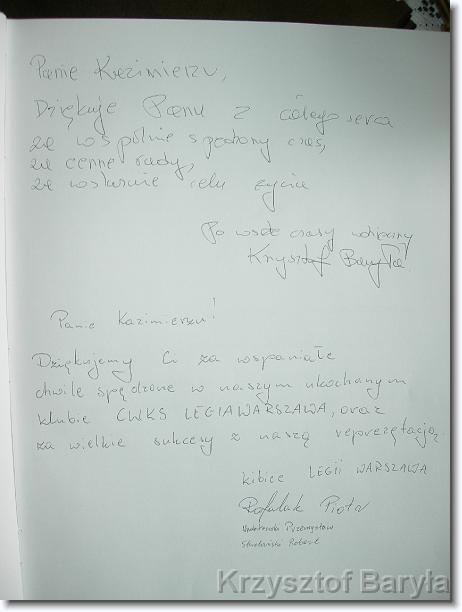 Panie Kazimierzu,
Dziękuję Panu z całego serca
za wspólnie spędzony czas,
za cenne rady,
za wskazanie celu życia
Po wsze czasy wdzięczny
Krzysztof Baryła
Panie Kazimierzu!
Dziękujemy Ci za wspaniałe
chwile spędzone w naszym ukochanym
klubie CWKS LEGIA WARSZAWA, oraz
za wielkie sukcesy z naszą reprezętacją
kibice LEGII WARSZAWA
Piotr
Przemysław
Robert
Krzysztof Baryła